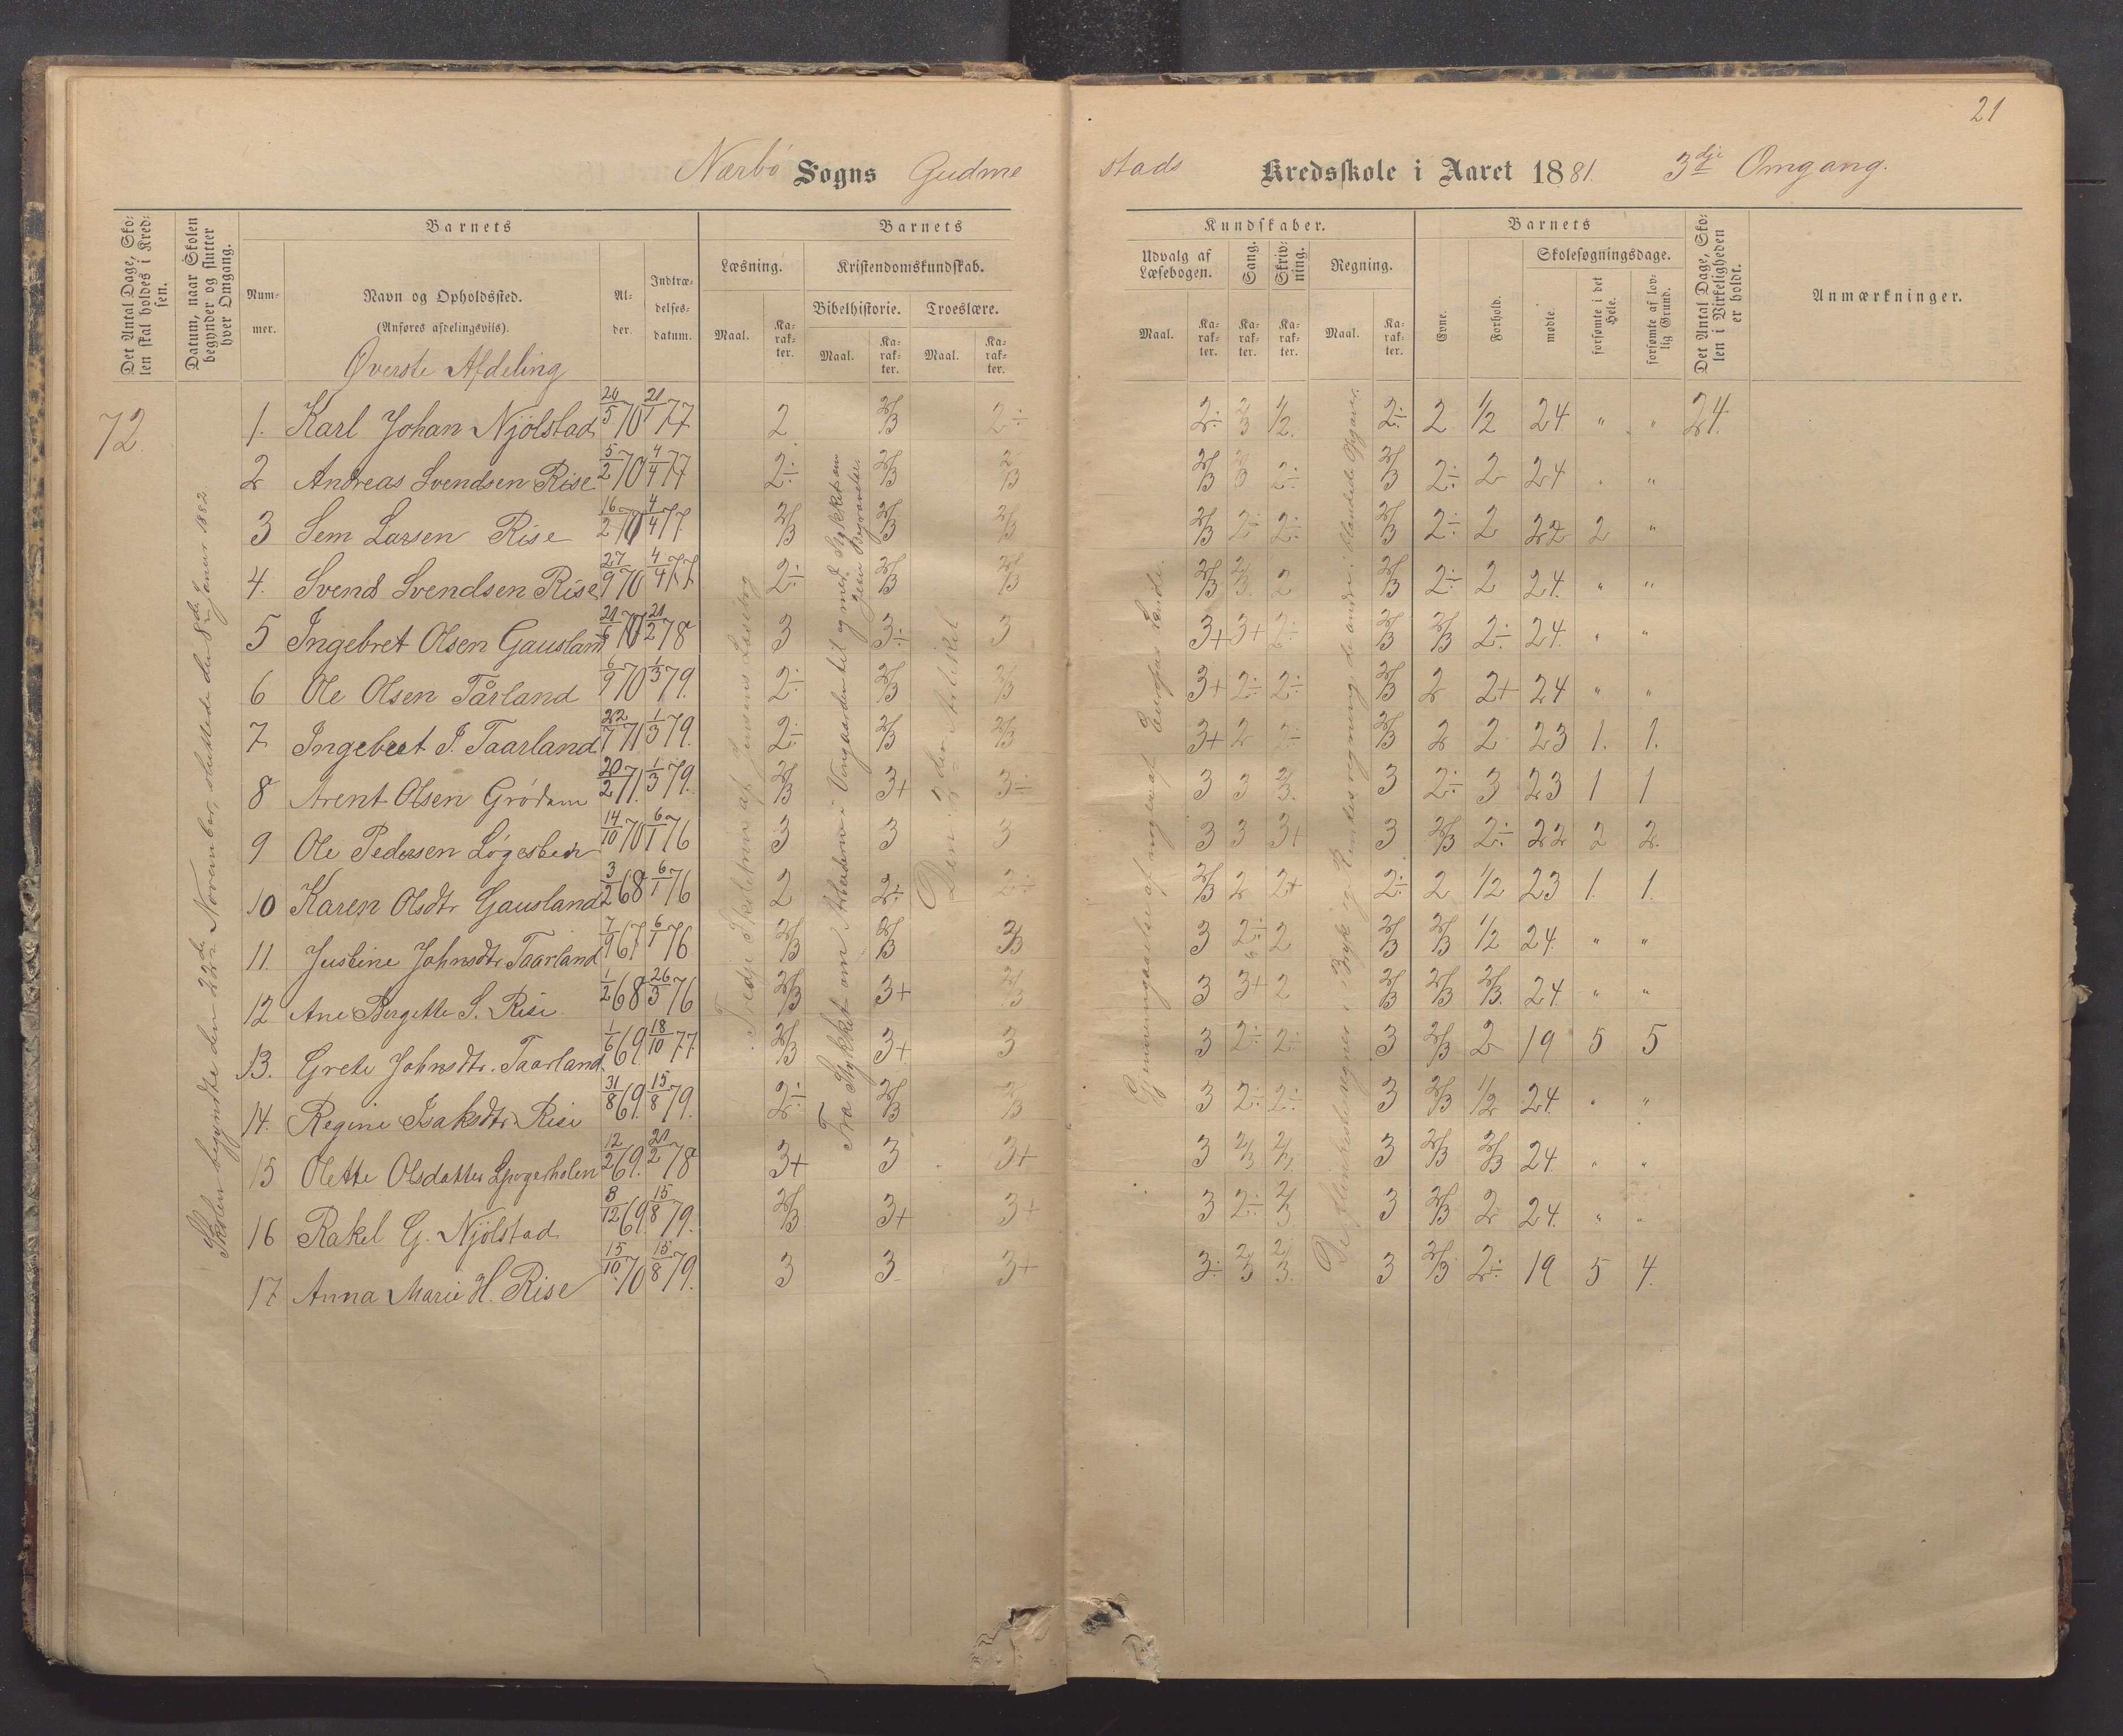 21
Nærbø Sogns Gudme
stads Kredsskole i Aaret 1881. 3dje Omgang.
Det Antal Dage, Sko-
len skal holdes i Kred-
sen.
Datum, naar Skolen
begynder og slutter
hver Omgang.
Barnets
Num-
mer.
Navn og Opholdssted.
(Anføres afdelingsviis).
Øverste Afdeling
Al-
der.
Indtræ-
delses-
datum.
Barnets
Læsning.
Maal.
Ka-
rak-
ter.
Kristendomskundskab.
Bibelhistorie.
Maal.
Ka-
rak-
ter.
Troeslære.
Maal.
Ka-
rak-
ter.
Kundskaber.
Udvalg af
Læsebogen.
Maal.
Ka-
rak-
ter.
Sang.
Ka-
rak-
ter.
Skriv-
ning.
Ka-
rak-
ter.
Regning.
Maal.
Ka-
rak-
ter.
Barnets
Evne.
Forhold.
Skolesøgningsdage.
mødte.
forsømte i det
Hele.
forsømte af lov-
lig Grund.
Det Antal Dage, Sko-
len i Virkeligheden
er holdt.
Anmærkninger.
72.
Skolen begyndte den 22de November, sluttede den 8de Januar 1882.
Tredje Skoletrin af Jensens Læsebog
Fra Stykket om Arbeiderne i Vingaarden til og med Stykket om
Jesu Begravelse.
Den 3die Artikel
Gjennemgaaelse af nogle af Europas Lande.
De flinkeste regner i Brøk og Rentesregning, de andre i blandede Opgaver.
1. Karl Johan Njölstad 24/5 70 21/1 77 2 2/3 2÷ 2÷ 2/3 1/2. 2÷ 2 1/2 24 " " 24.
2 Andreas Svendsen Rise 5/2 70 4/4 77 2÷ 2/3 2/3 2/3 2/3 2÷ 2/3 2÷ 2 24 " "
3 Sem Larsen Rise 16/2 70 4/4 77 2/3 2/3 2/3 2/3 2÷ 2÷ 2/3 2÷ 2 22 2 "
4. Svend Svendsen Rise 27/9 70 4/4 77 2÷ 2/3 2/3 2/3 2/3. 2 2/3 2÷ 2 24. " "
5 Ingebret Olsen Gausland 21/6 70 21/2 78 3 3÷ 3 3+ 3+ 2÷ 2/3 2/3 2÷ 24. " "
6 Ole Olsen Tårland 6/9 70 1/3 79. 2÷ 2/3 2/3 3+ 2÷ 2÷ 2/3 2 2+ 24 " "
7 Ingebret J. Taarland 22/7 71 1/3 79. 2÷ 2/3 2/3 3+ 2 2÷ 2/3 2 2 23 1. 1.
8 Arent Olsen Grödem 20/2 71. 1/3 79. 2/3 3+ 3÷ 3 3 2/3. 3 2÷ 3 23 1 1
9 Ole Pedersen 14/10 70 6/1 76 3 3 3 3 3 3+ 3 2/3 2÷ 22 2 2.
10 Karen Olsdtr Gausland 3/2 68 6/1 76 2 2÷ 2÷ 2/3 2 2+ 2÷ 2 1/2 23 1. 1.
11. Justine Johnsdtr Taarland 7/9 67 6/1 76 2/3 2/3 2/3 3 2÷ 2 2/3 2/3 1/2 24. " "
12 Ane Bergette S. Rise 1/2 68 26/3 76 2/3 3+ 2/3 3 3+ 2 2/3 2/3 2/3. 24. " "
13. Grete Johnsdtr. Taarland. 1/6 69. 18/10 77. 2/3 3+ 3 3 2÷ 2÷ 3 2/3 2 19 5 5
14. Regine Isaksdtr Rise 31/8 69. 15/8 79. 2÷ 2/3 2/3 3 2÷ 2÷ 3 2/3 1/2 24. " "
15 Olette Olsdatter 12/2 69. 21/2 78 3+ 3 3+ 3 2/3 2/3. 3 2/3 2/3 24. " "
16 Rakel G. Njölstad 8/12 69. 15/8 79. 2/3 3+ 3+ 3 2÷ 2/3 3 2/3 2 24. " "
17 Anna Marie H. Rise 15/10 70 15/8 79. 3 3 3+ 3÷ 2/3 2/3. 3 2/3 2÷ 19 5 4.